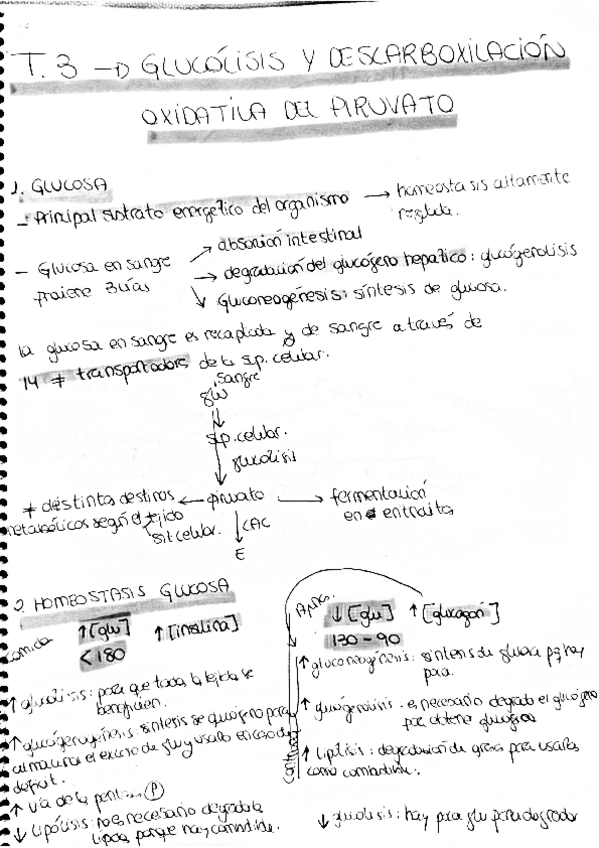 T. 3 → GLUCÓLISIS Y DESCARBOXILACIÓN
OXIDATIVA DEL PIRUVATO
1. GLUCOSA
- Principal sustrato energético del organismo → homeostasis altamente
regulada.
- Glucosa en sangre
proviene 3 vías
→ absorción intestinal
→ degradación del glucógeno hepático: glucógenolisis
↓ Gluconeogénesis: síntesis de glucosa.
la glucosa en sangre es recaptada y de sangre a través de
14 ≠ transportadores de la sup. celular.
sangre
glu
↓
sup. celular.
↓ glucolisis
≠ destintos destinos ← piruvato → fermentación
metabólicos según el tejido
sit celular.
en entraita
↓ CAC
E
2. HOMEOSTASIS GLUCOSA
comida
↑ [glu] ↑ [insulina]
< 180
↑ glucolisis: para que todos los tejidos se
beneficien.
↑ glucógenogénesis: síntesis de glucógeno para
almacenar el exceso de glu y usarlo en caso de
deficit.
↑ vía de la pentosas (P)
↓ lipólisis: no es necesario degradar la
lípidos, porque hay comida.
Ayuno.
↓ [glu] ↑ [glucagón]
130 - 90
↑ gluconeogénesis: síntesis de glucosa pq hay
poca.
↑ glucógenolisis: es necesario degradar el glucógeno
para obtener glucosa
↑ Lipólisis: degradación de grasa para usarlas
como combustible.
↓ glucolisis: hay poca glu para degradar